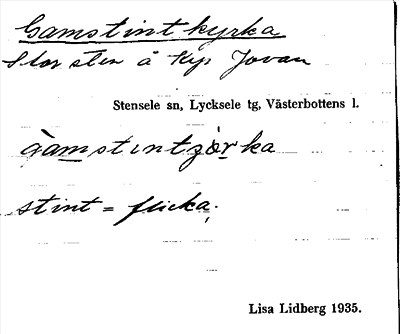 Gamstintkyrka
Stor sten å Kyp Jovan
Stensele sn, Lycksele tg, Västerbottens l.
gàmstintzòrka
stint = flicka.
Lisa Lidberg 1935.